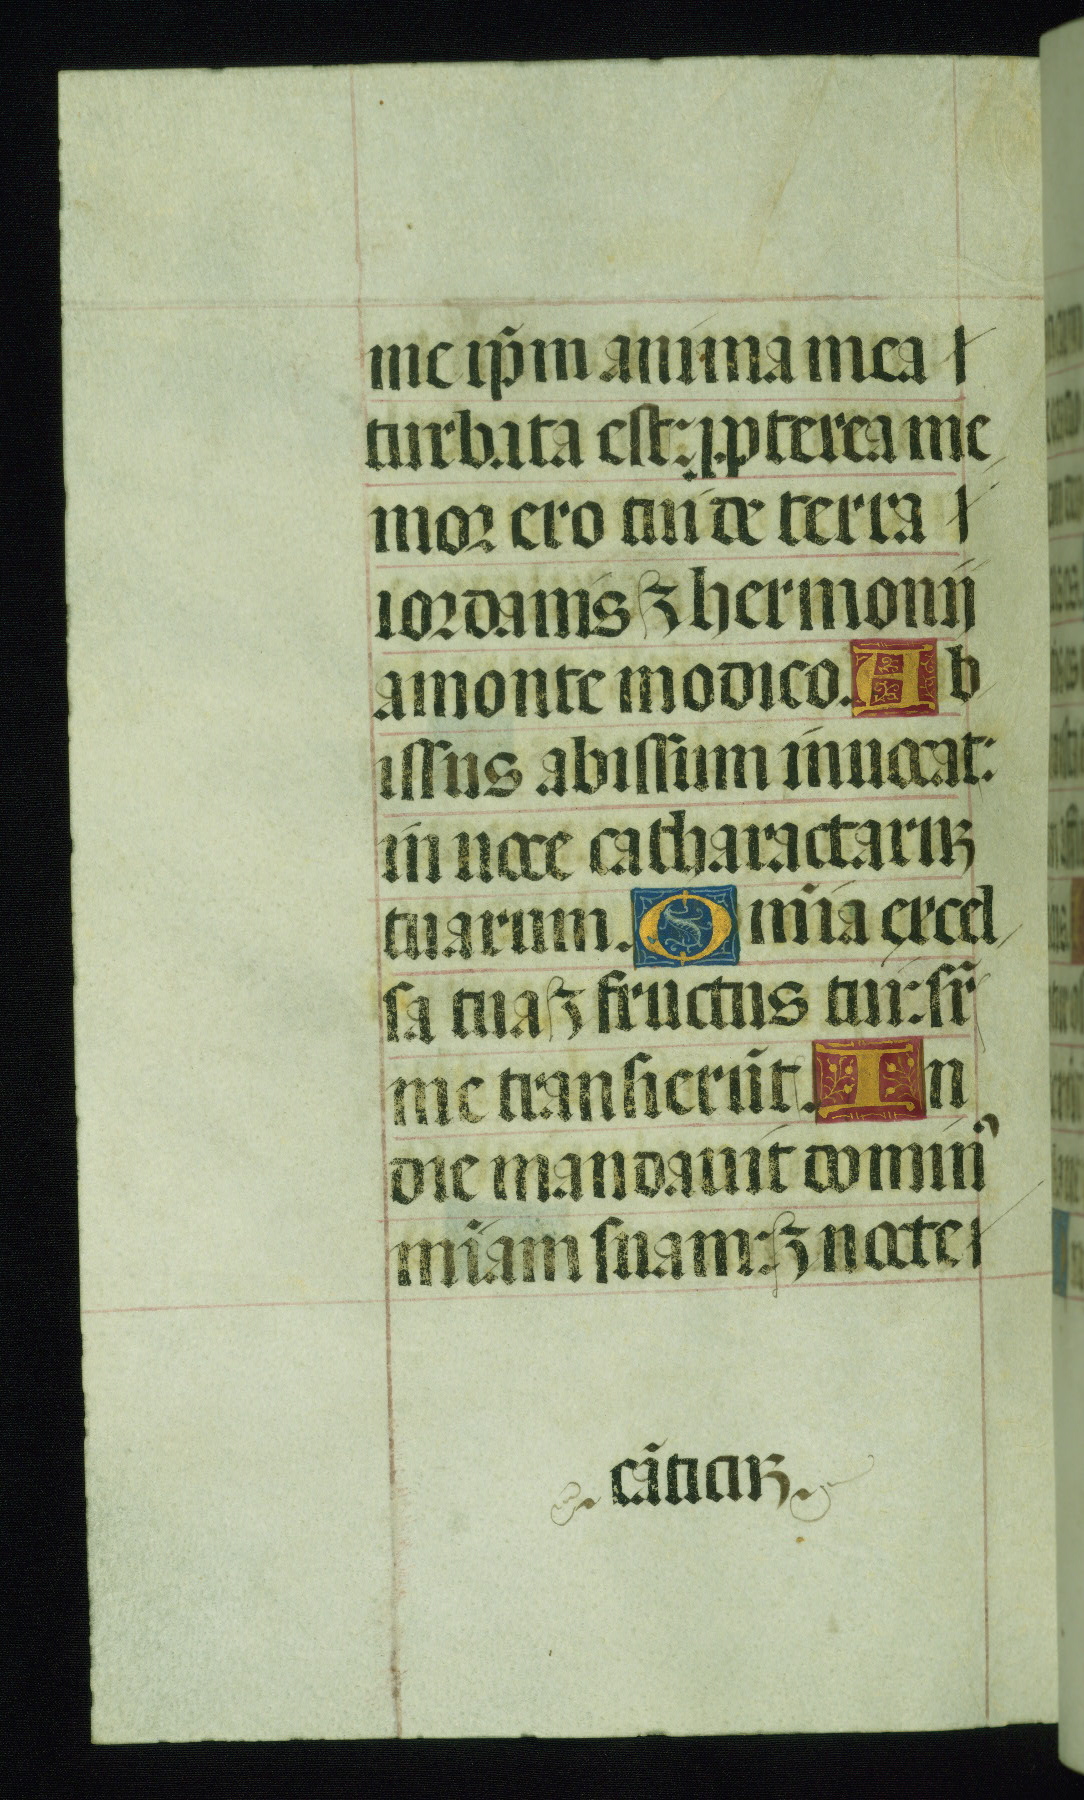 me ip̃m anima mea
turbata est: ꝓpterea me
mor ero tui de terra
iordanis ⁊ hermonij
a monte modico. Ab
issus abissum inuocat:
in uoce catharactarꝝ
tuarum. Om̃ia excel
sa tua ⁊ fructus tui: sr̃
me transierũt. In
die mandauit domin᷒
mĩam suam: ⁊ nocte
cãticꝝ